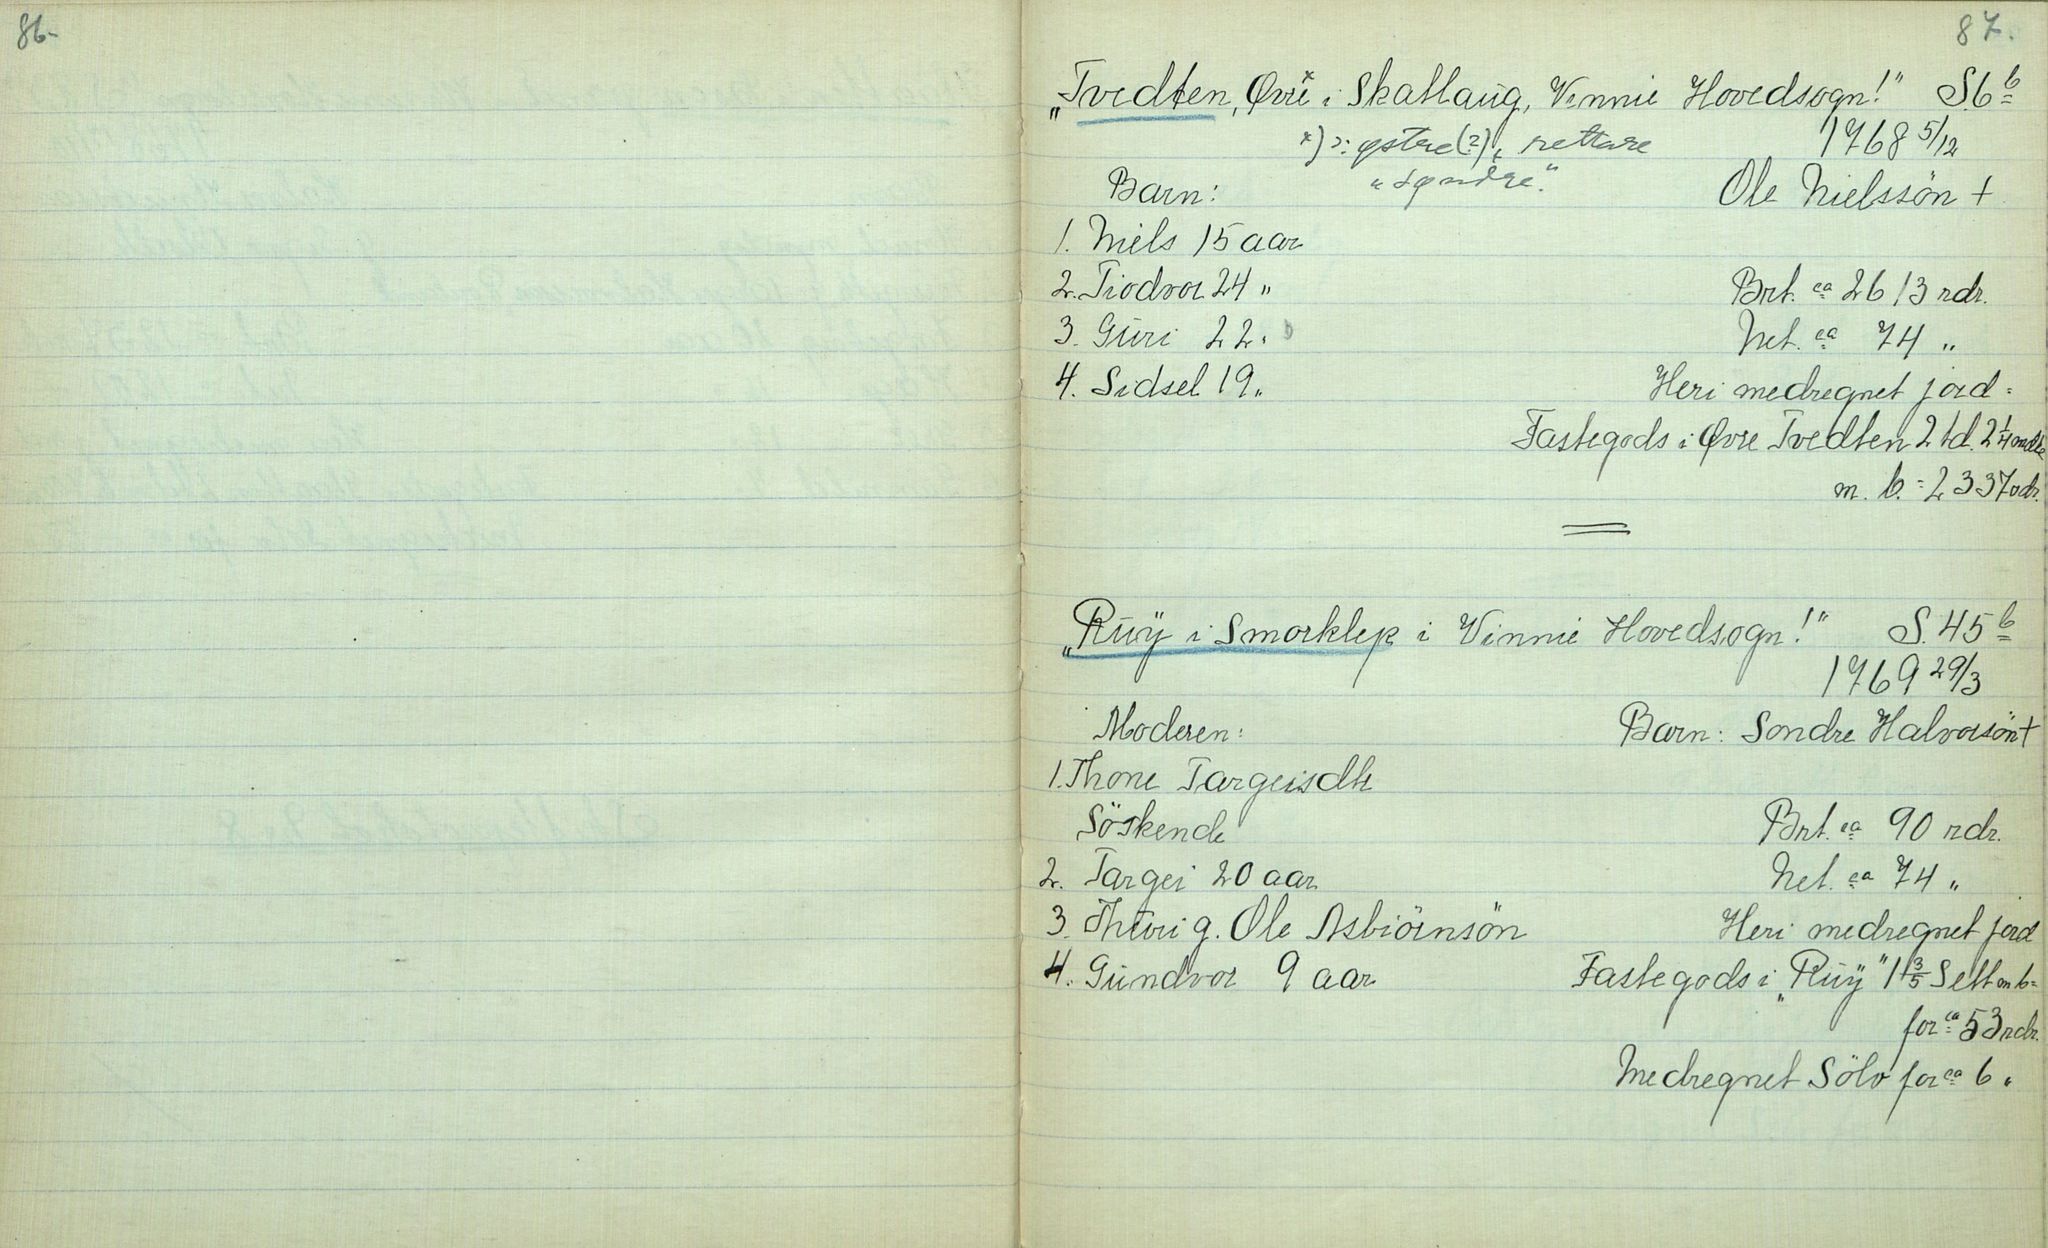 86-
87.
„Tvedten, Øvre* i Skatlaug, Vinnie Hovedsogn!" S. 6 b
*) ɔ: østre(?), rettare 1768 5/12
"søndre".
Barn: Ole Nielssön +
1. Niels 15 aar
2. Tiodvor 24 „ Brt. ca 2613 rdr.
3. Guri 22 „ Net. ca 74 „
4. Sidsel 19 „ Heri medregnet jord =
Fastegods i Øvre Tvedten 2 td. 2 1/4
m. b. = 2337 rdr.
„Ruÿ i Smorklep i Vinnie Hovedsogn!" S. 45 b
1769 29/3
Moderen: Barn: Sondre Halvorsön +
1. Thone Targeisdtr
Söskende Brt. ca 90 rdr.
2. Targei 20 aar Net. ca 74 „
3. Thuri g. Ole Asbiörnsön Heri medregnet jord
4. Gundvor 9 aar Fastegods i „Ruÿ" 1 3/5 Sett m b =
for ca 53 rdr.
Medregnet Sölv for ca 6 „